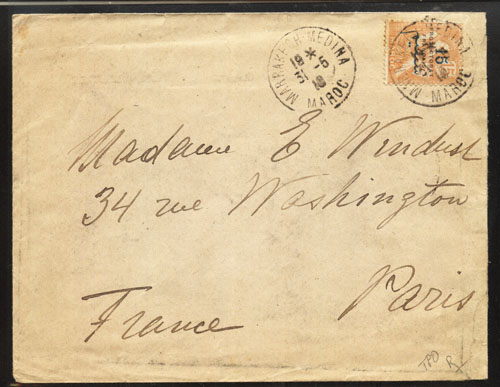 MARRAKECH-MEDINA
18 * -5
MAROC
Madame E Windust
34 rue Washington
Paris
France